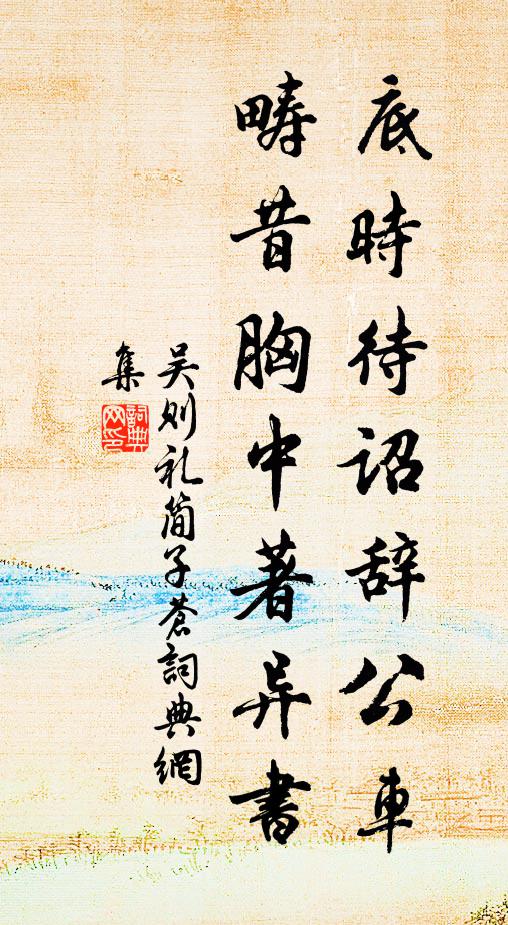 底時待詔辞公車
疇昔胸中著异書
吴则礼简子蒼詞典網
集
詞典网印